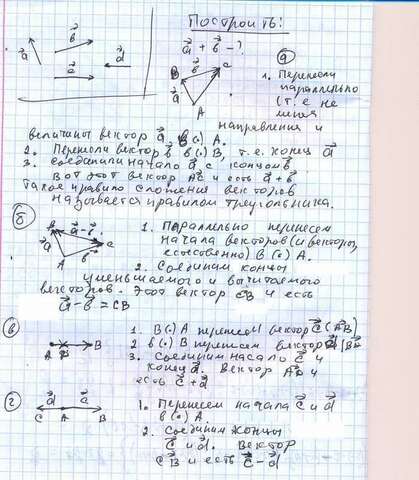 Построить:
a⃗ + b⃗ - ?
а
1. Перенесли
параллельно
(т. е. не
меняя
направления и
величины вектор a⃗ в (.) A.
2. Перенесли вектор b⃗ в (.) B, т. е. конец a⃗
3. Соединили начало a⃗ с концом b⃗
Вот этот вектор AC и есть a⃗ + b⃗
Такое правило сложения векторов
называется правилом треугольника.
б
1. Параллельно перенесем
начала векторов (и векторы,
естественно) в (.) A.
2. Соединим концы
уменьшаемого и вычитаемого
векторов. Этот вектор CB и есть
a⃗ - b⃗ = CB
в
1. В (.) A перенесем вектор c⃗ (AB)
2. в (.) B перенесем вектор d⃗
3. Соединим начало c⃗ и
конец d⃗. Вектор AD и
есть c⃗ + d⃗
г
1. Перенесем начала c⃗ и d⃗
в (.) A
2. Соединим концы
c⃗ и d⃗. Вектор
CB и есть c⃗ - d⃗